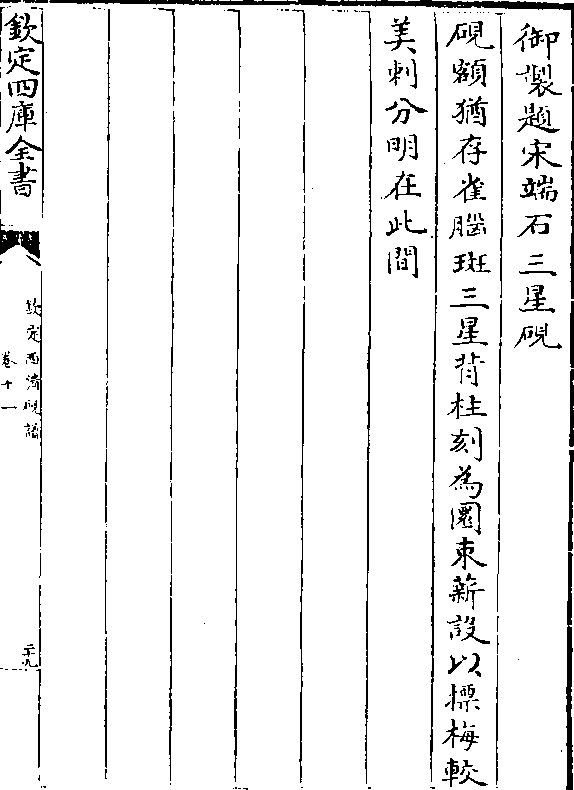 御製題宋端石三星硯
硯額猶存雀腦斑三星背柱刻為圜束薪設以摽梅較
美刺分明在此間
欽定四庫全書
欽定西清硯譜
卷十一
二十九